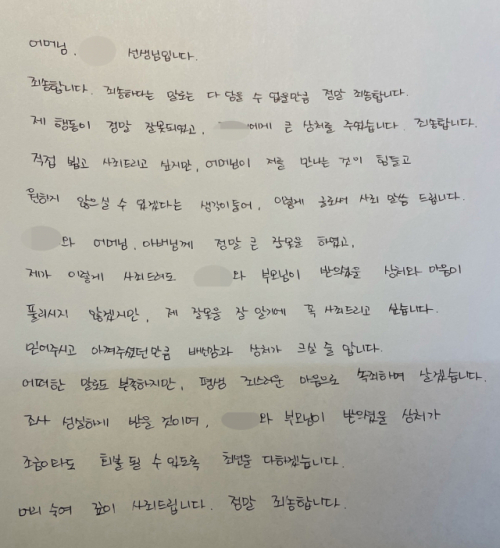 어머님. 선생님입니다.
죄송합니다. 죄송하다는 말로는 다 담을 수 없을만큼 정말 죄송합니다.
제 행동이 정말 잘못되었고, 에게 큰 상처를 주었습니다. 죄송합니다.
직접 뵙고 사죄드리고 싶지만, 어머님이 저를 만나는 것이 힘들고
원하지 않으실 수 있겠다는 생각이 들어, 이렇게 글로써 사죄 말씀 드립니다.
와 어머님, 아버님께 정말 큰 잘못을 하였고,
제가 이렇게 사죄드려도 와 부모님이 받으셨을 상처와 마음이
풀리시지 않겠지만, 제 잘못을 잘 알기에 꼭 사죄드리고 싶습니다.
믿어주시고 아껴주셨던만큼 배반감과 상처가 크실 줄 압니다.
어떠한 말로도 부족하지만, 평생 죄스러운 마음으로 속죄하며 살겠습니다.
조사 성실하게 받을 것이며, 와 부모님이 받으셨을 상처가
조금이라도 회복 될 수 있도록 최선을 다하겠습니다.
머리 숙여 깊이 사죄드립니다. 정말 죄송합니다.